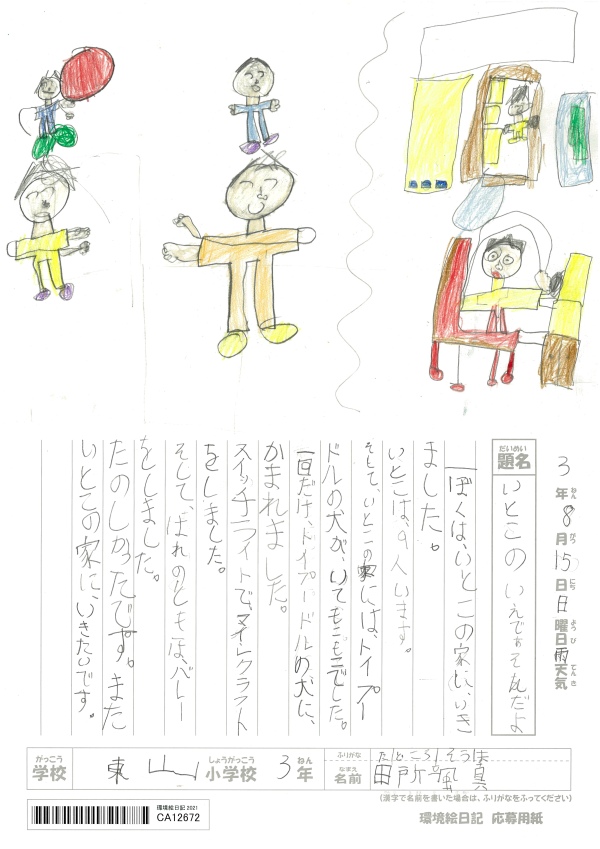 3年8月15日日曜日雨天気
ねん がつ にち ようび てんき
だいめい
題名
いとこのいえであそんだよ
ぼくは、いとこの家に、いき
ました。
いとこは、9人います。
そして、いとこの家には、トイプー
ドルの犬が、いてもこもこでした。
一回だけ、トイプードルの犬に、
かまれました。
スイッチライトで、マイクラフト
をしました。
そして、ばれのともな、バレー
をしました。
たのしかったです。また
いとこの家に、いきたいです。
がっこう しょうがっこう ねん
学校 東山小学校 3年
ふりがな たどころ そうま
なまえ
名前 田所 颯真
(漢字で名前を書いた場合は、ふりがなをふってください)
環境絵日記 2021
CA12672
環境絵日記 応募用紙